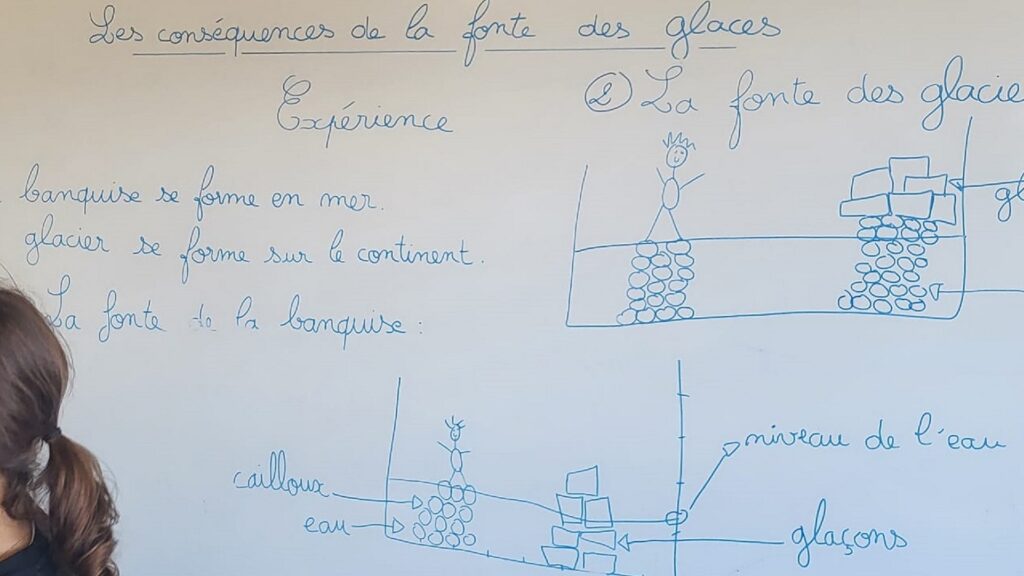 Les conséquences de la fonte des glaces
Expérience
banquise se forme en mer.
glacier se forme sur le continent.
La fonte de la banquise :
cailloux
eau
niveau de l'eau
glaçons
② La fonte des glacie
gl